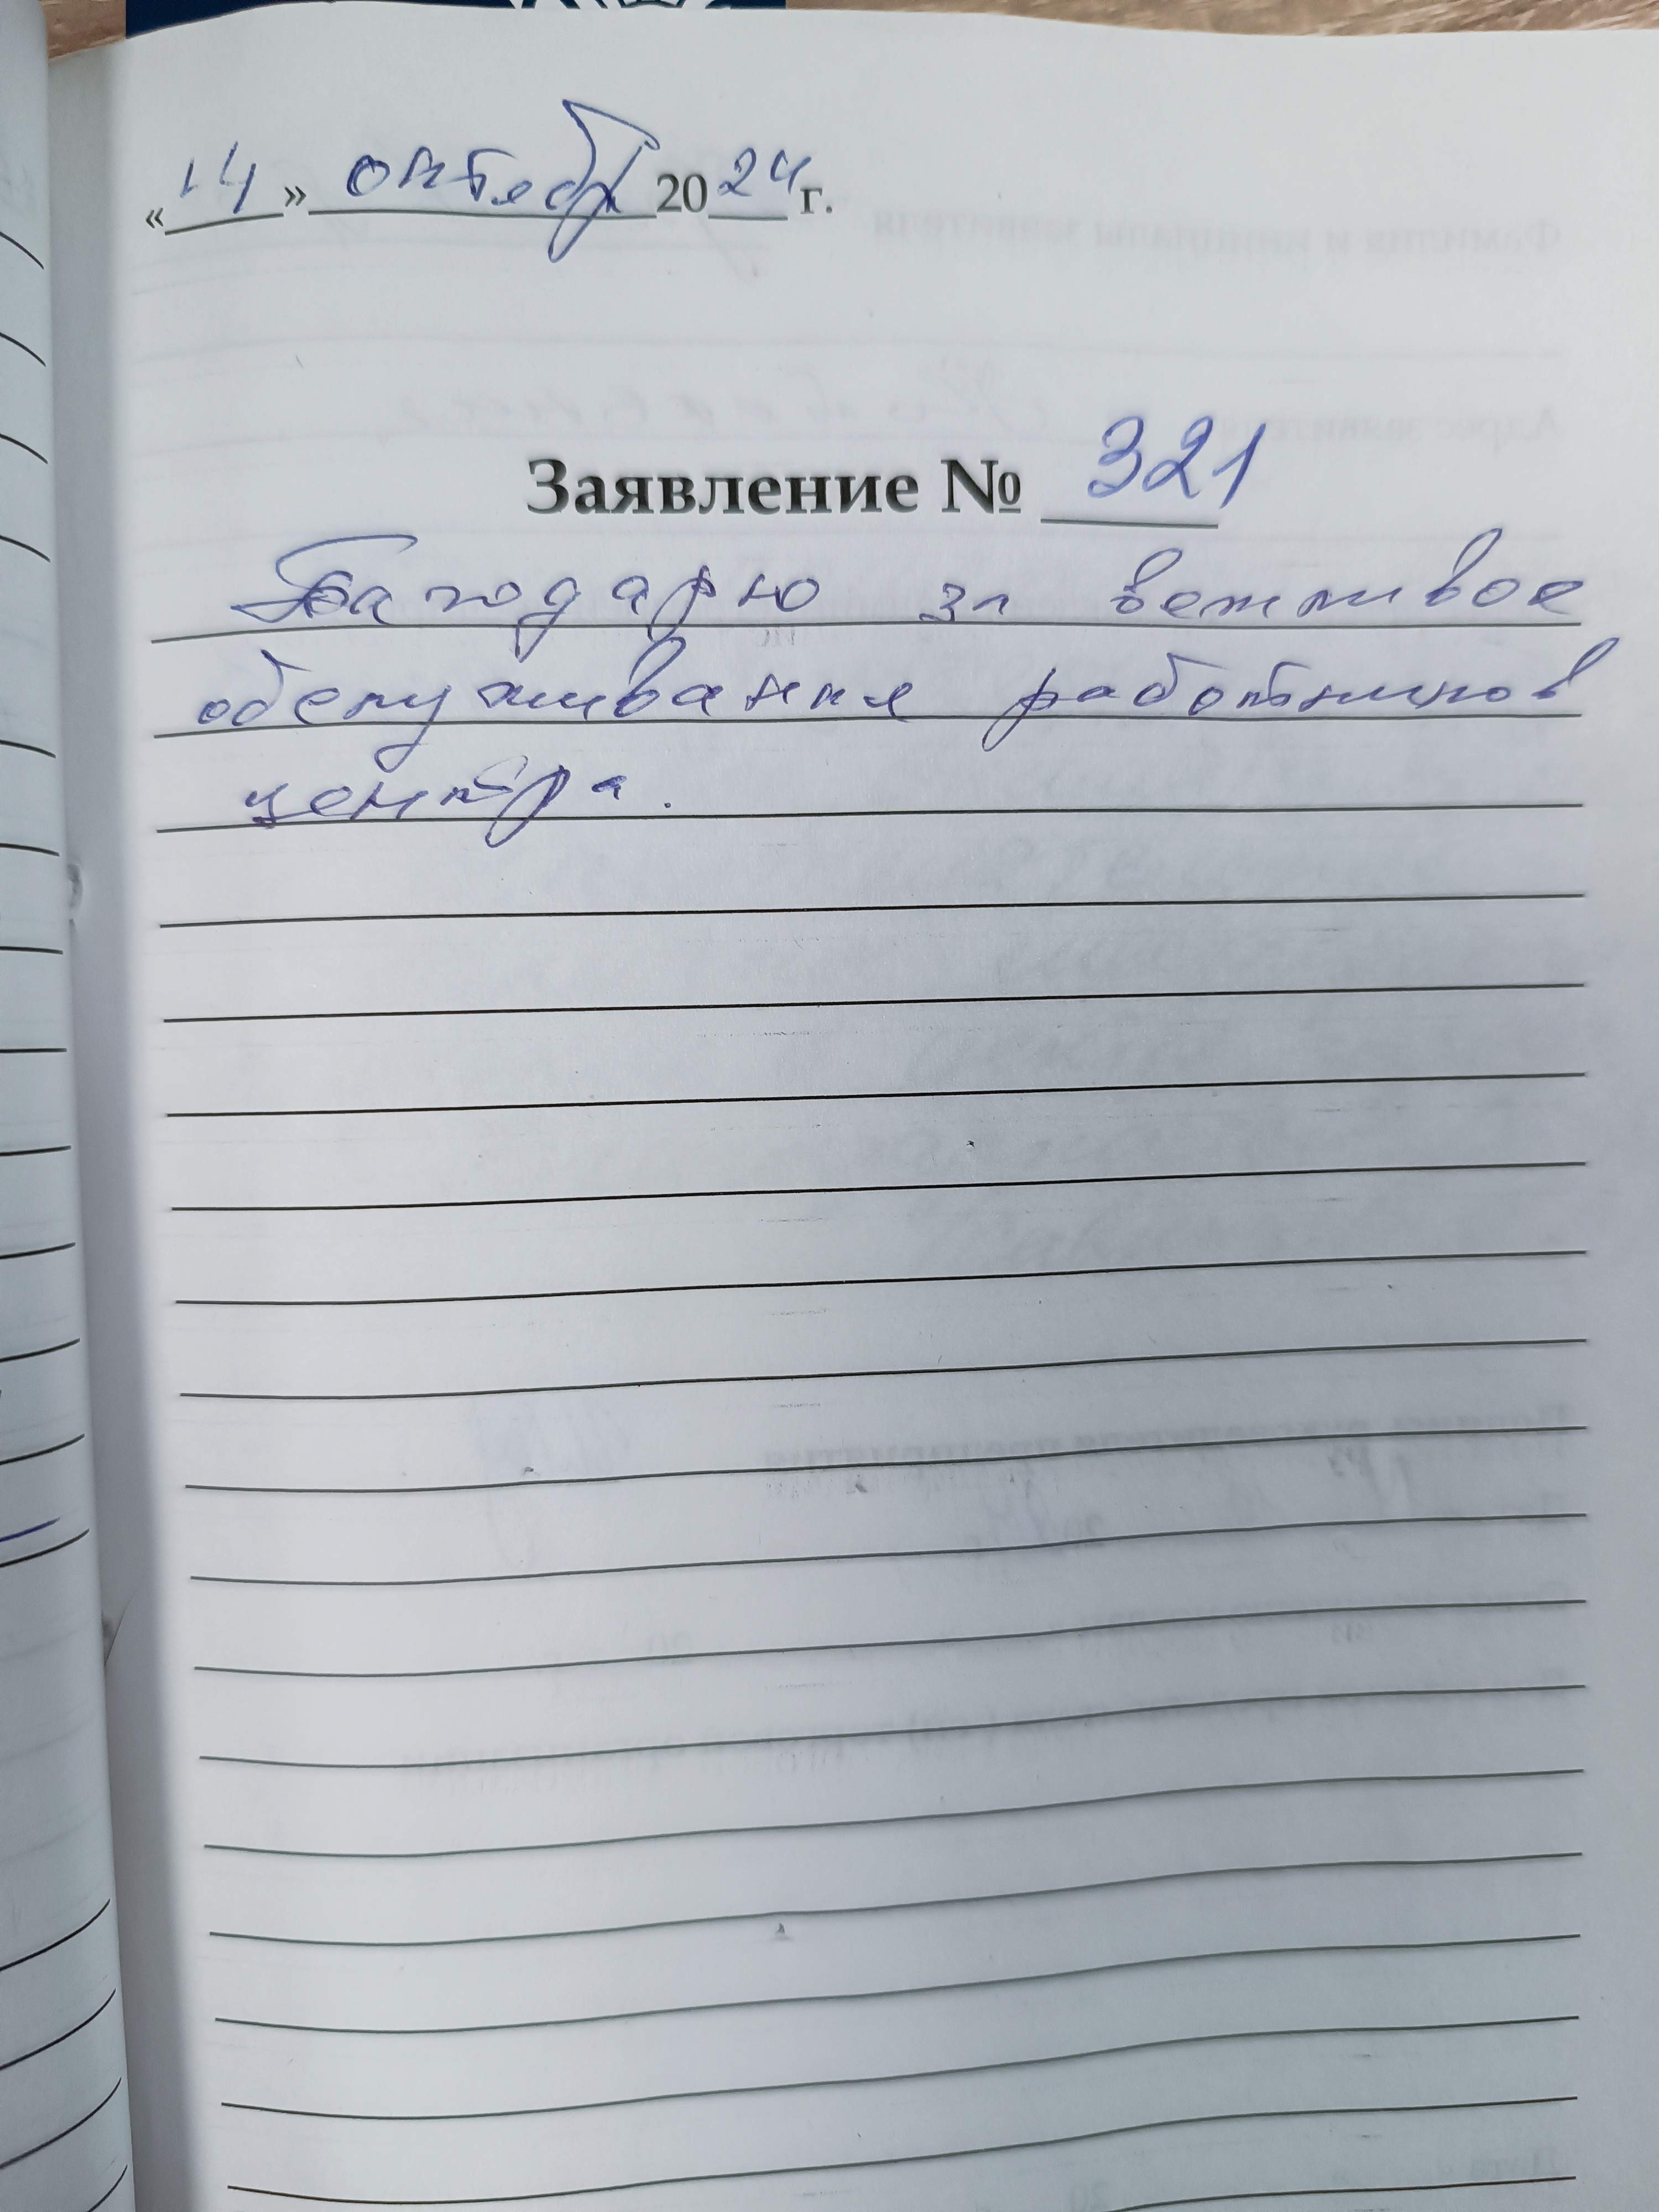 «14» октябр 2024 г.
Заявление № 321
Благодарю за вежливое
обслуживания работников
центра.